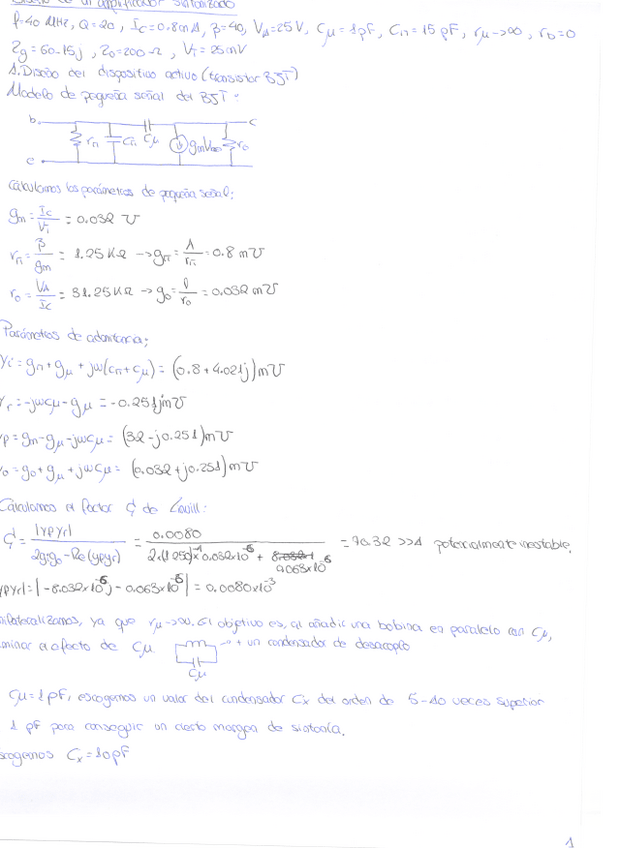 Diseño de un amplificador sintonizado
f=40 MHz, Q=20, Ic=0.8mA, β=40, VA=25V, Cμ=1pF, Cπ=15pF, rμ→∞, rb=0
Zg=50-15j, Zo=200Ω, VT=25mV
1. Diseño del dispositivo activo (transistor BJT)
Modelo de pequeña señal del BJT:
b c
rπ Cπ Cμ gmVπ ro
e
Calculamos los parámetros de pequeña señal;
gm = Ic/VT = 0.032 ℧
rπ = β/gm = 1.25KΩ → gπ = 1/rπ = 0.8 m℧
ro = VA/Ic = 31.25KΩ → go = 1/ro = 0.032 m℧
Parámetros de admitancia;
Yi = gπ + gμ + jω(cπ+cμ) = (0.8+4.021j) m℧
Yr = -jωcμ - gμ = -0.251j m℧
yf = gm - gμ - jωcμ = (32 - j0.251) m℧
yo = go + gμ + jωcμ = (0.032+j0.251) m℧
Calculamos el factor C de Linvill:
C = |yfyr| / (2gigo - Re(yfyr)) = 0.0080 / (2·(1250)⁻¹·0.032x10⁻⁶ + 0.063x10⁻⁶) = 70.32 >>1 potencialmente inestable.
|yfyr| = |-8.032x10⁻⁶j - 0.063x10⁻⁶| = 0.0080x10⁻³
unilateralizamos, ya que rμ→∞. El objetivo es, al añadir una bobina en paralelo con Cμ,
eliminar el efecto de Cμ → + un condensador de desacoplo
Cμ
Cμ=1pF, escogemos un valor del condensador Cx del orden de 5-10 veces superior
1 pF para conseguir un cierto margen de sintonía.
escogemos Cx=10pF
1